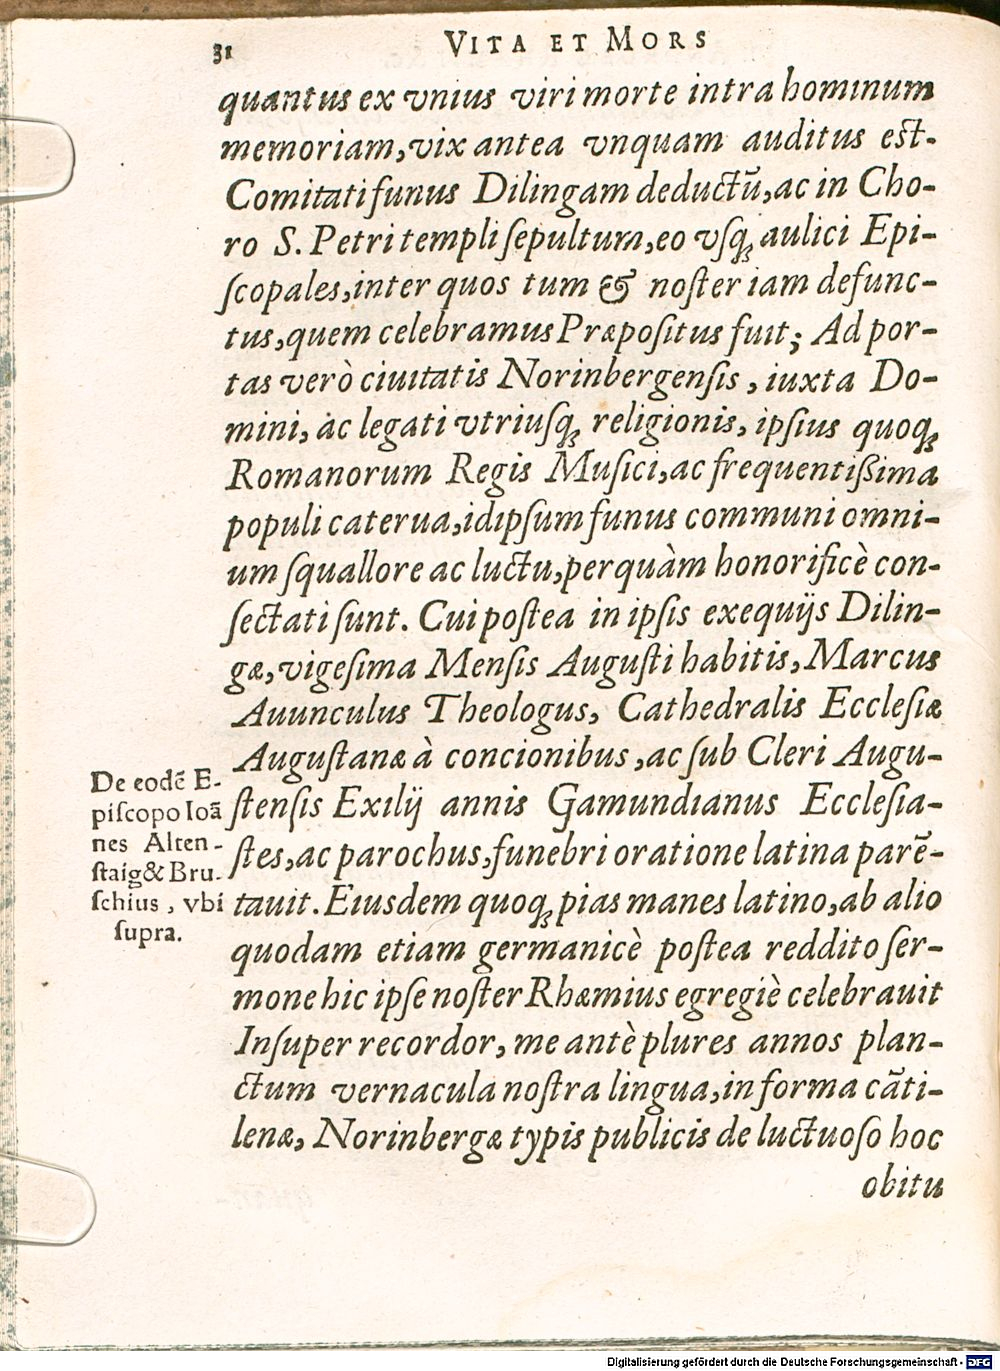 31
VITA ET MORS
quantus ex vnius viri morte intra hominum
memoriam,vix antea vnquam auditus eſt.
Comitati funus Dilingam deductũ,ac in Cho-
ro S. Petri templi ſepultum,eo vſq́; aulici Epi-
ſcopales,inter quos tum & noſter iam defunc-
tus,quem celebramus Præpoſitus fuit; Ad por-
tas verò ciuitatis Norinbergenſis, iuxta Do-
mini, ac legati vtriuſq́; religionis, ipſius quoq́;
Romanorum Regis Muſici,ac frequentißima
populi caterua,idipſum funus communi omni-
um ſquallore ac luctu,perquàm honorificè con-
ſectati ſunt. Cui poſtea in ipſis exequijs Dilin-
gæ,vigeſima Menſis Auguſti habitis,Marcus
Auunculus Theologus, Cathedralis Eccleſiæ
Auguſtanæ à concionibus,ac ſub Cleri Augu-
ſtenſis Exilij annis Gamundianus Eccleſia-
ſtes,ac parochus,funebri oratione latina parẽ-
tauit. Eiusdem quoq́; pias manes latino,ab alio
quodam etiam germanicè poſtea reddito ſer-
mone hic ipſe noſter Rhæmius egregiè celebrauit
Inſuper recordor, me antè plures annos plan-
ctum vernacula noſtra lingua,in forma cãti-
lenæ, Norinbergæ typis publicis de luctuoſo hoc
obitu
De eodẽ E-
piſcopo Ioã
nes Alten-
ſtaig& Bru-
ſchius, vbi
ſupra.
Digitalisierung gefördert durch die Deutsche Forschungsgemeinschaft - DFG